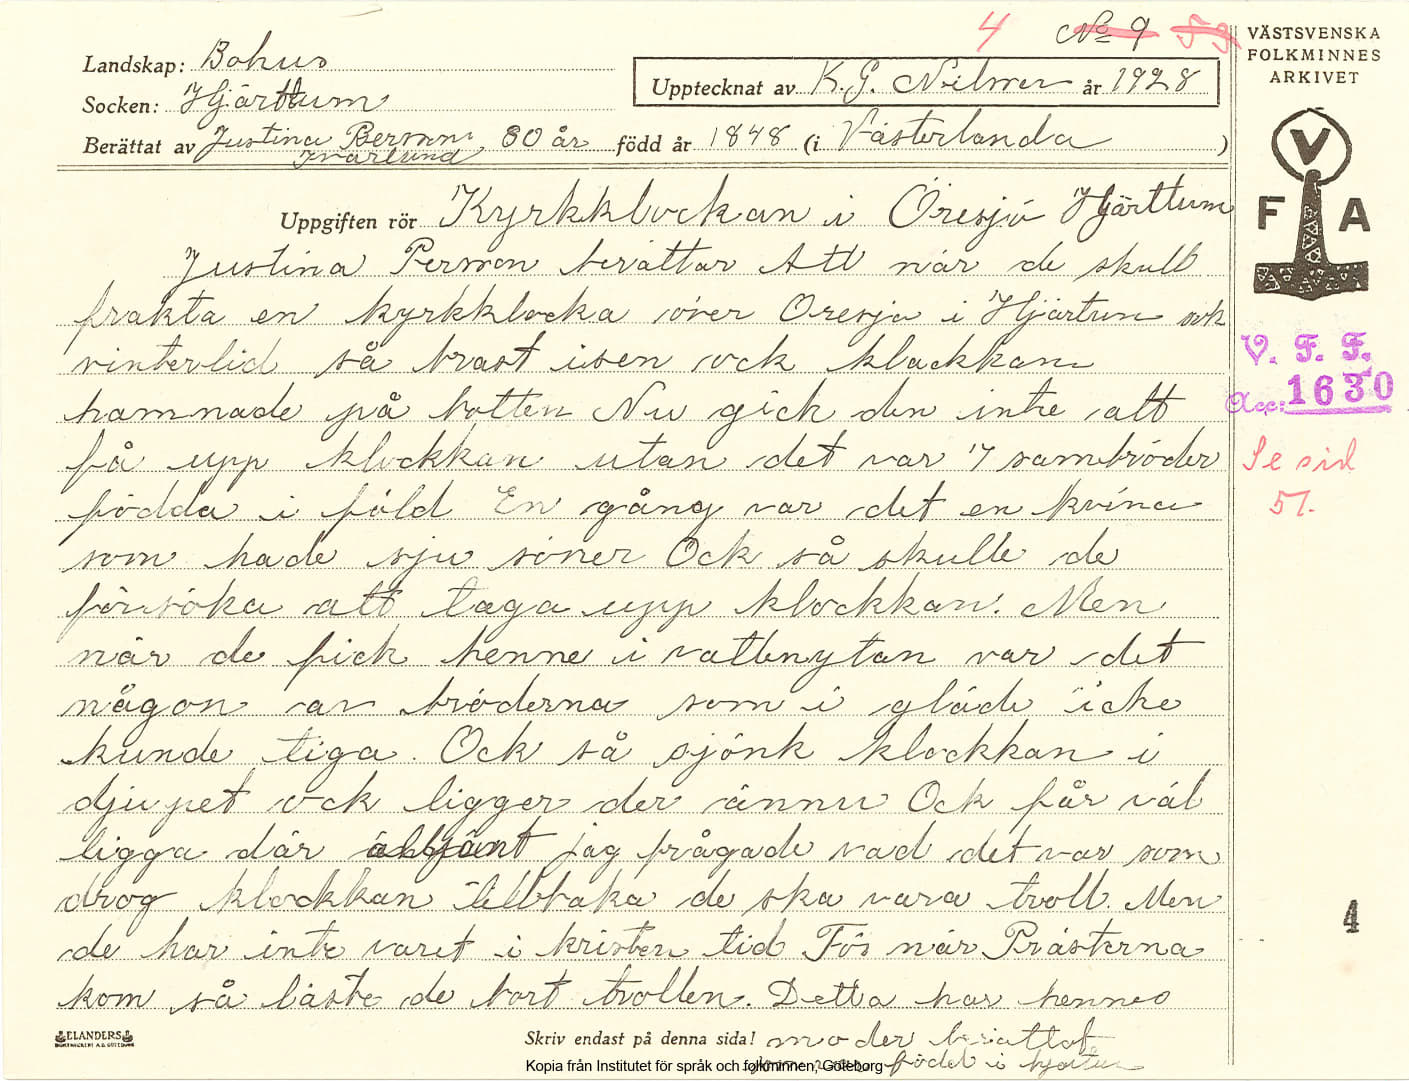 4 No 9 59
VÄSTSVENSKA
FOLKMINNES
ARKIVET
Landskap: Bohus
Upptecknat av K. G. Nilmer år 1928
Socken: Hjärttum
Berättat av Justina Perman 80 år född år 1848 (i Västerlanda)
Uppgiften rör Kyrkklockan i Öresjö Hjärttum
V
F A
Justina Perman berättar Att när de skull
frakta en kyrkklocka över Öresjö i Hjärtum ock
vintertid så brast isen ock klockkan
hamnade på botten Nu gick den inte att
få upp klockkan utan det var 7 sambröder
födda i föld En gång var det en kvina
som hade sju söner Ock så skulle de
försöka att taga upp klockkan. Men
när de fick henne i vattenytan var det
någon av bröderna som i gläde icke
kunde tiga. Ock så sjönk klockkan i
djupet ock ligger der ännu Ock får väl
ligga där jag frågade vad det var som
drog klockkan tillbaka de ska vara troll. Men
de har inte varet i kristen tid Fös när Prästerna
kom så läste de bort trollen. Detta har hennes
moder berättat
född i hjertum
V. F. F.
Acc: 1630
Se sid
51.
4
ELANDERS
Skriv endast på denna sida!
Kopia från Institutet för språk och folkminnen, Göteborg